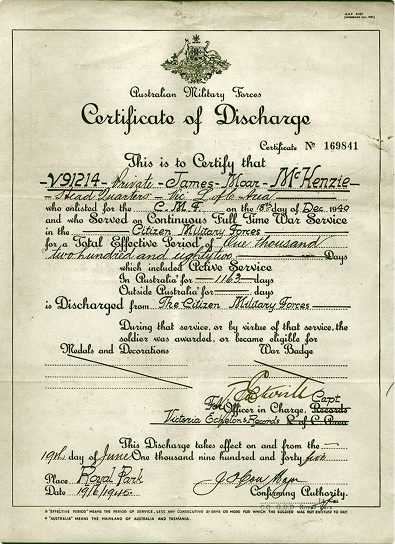 Australian Military Forces
Certificate of Discharge
Certificate No 169841
This is to Certify that
V91214 - Private - James - Moar - McKenzie -
Head Quarters - Vic L of C Area
who enlisted for the C.M.F. on the 18th day of Dec. 1940
and who Served on Continuous Full Time War Service
in the Citizen Military Forces
for a Total Effective Period of One thousand
two hundred and eighty two Days
which included Active Service
In Australia* for 1163 days
Outside Australia* for days
is Discharged from The Citizen Military Forces
During that service, or by virtue of that service, the
soldier was awarded, or became eligible for
Medals and Decorations War Badge
Capt
Officer in Charge, Records
Victoria Echelon & Records L of C Area
This Discharge takes effect on and from the
19th day of June One thousand nine hundred and forty five
Place Royal Park
Date 19/6/1945. Major
Confirming Authority.
* "EFFECTIVE PERIOD" MEANS THE PERIOD OF SERVICE, LESS ANY CONSECUTIVE 21 DAYS OR MORE FOR WHICH THE SOLDIER WAS NOT ENTITLED TO PAY.
* "AUSTRALIA" MEANS THE MAINLAND OF AUSTRALIA AND TASMANIA.